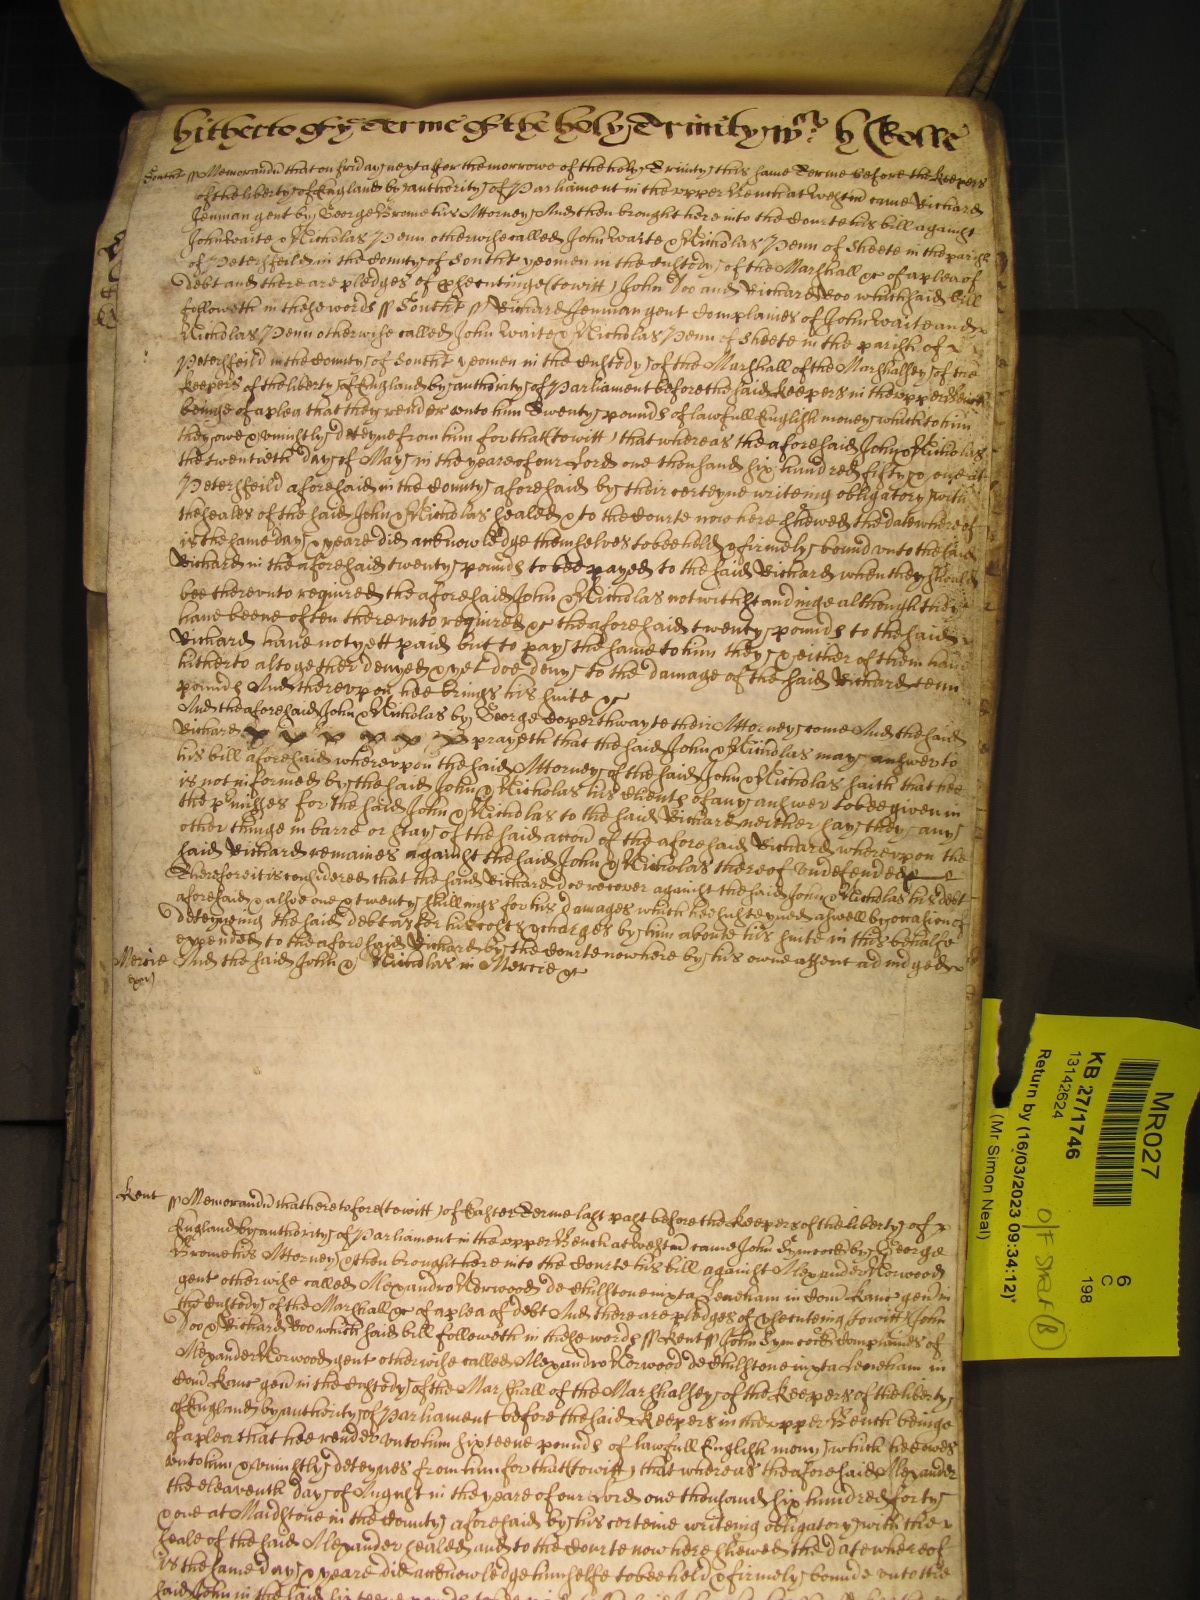 hitherto of ye Terme of the holy Trinity wth h Rolle
Southt ss Memorandu that on friday next after the morrowe of the holy Trinity this same Terme before the Keepers
of the liberty of England by authority of Parliament in the upper Bench at Westm came Richard
Jenman gent by George Brome his Attorney And then brought here into the Courte his bill against
John Waite & Nicholas Penn otherwise called John Waite & Nicholas Penn of Sheete in the parish
of Petersfeild in the County of Southt yeomen in the Custody of the Marshall &c of a plea of
debt and there are pledges of prosecutinge (to witt) John Doo and Richard Roo which said bill
followeth in these words ss Southt ss Richard Jenman gent Complaines of John Waite and
Nicholas Penn otherwise called John Waite & Nicholas Penn of Sheete in the parish of
Petersfeild in the County of Southt yeomen in the Custody of the Marshall of the Marshalsey of the
Keepers of the liberty of England by authority of Parliament before the said Keepers in the upper Bench
beinge of a plea that they render unto him Twenty pounds of lawfull English money which to him
they owe & uniustly deteyne from him for that (to witt) that whereas the aforesaid John & Nicholas
the twentieth day of May in the yeare of our Lord one thousand six hundred fifty & one at
Petersfeild aforesaid in the County aforesaid by their certeyne writeing obligatory with
the seales of the said John & Nicholas sealed & to the Courte now here shewed the date whereof
is the same day & yeare did acknowledge themselves to bee held & firmely bound unto the said
Richard in the aforesaid twenty pounds to bee payed to the said Richard when they should
bee thereunto required the aforesaid John & Nicholas notwithstandinge although they
have beene often thereunto required &c the aforesaid twenty pounds to the said
Richard have not yett paid but to pay the same to him they & either of them have
hitherto altogether denyed & yet doe deny to the damage of the said Richard tenn
pounds And thereupon hee brings his suite &c
And the aforesaid John & Nicholas by George Copperthwayte their Attorney come And the said
Richard prayeth that the said John & Nicholas may answer to
his bill aforesaid whereupon the said Attorney of the said John & Nicholas saith that hee
is not informed by the said John & Nicholas his Clients of any answer to bee given in
the premisses for the said John & Nicholas to the said Richard neither say they any
other thinge in barre or stay of the said accon of the aforesaid Richard whereupon the
said Richard remaines against the said John & Nicholas thereof undefended &c
Therefore it is considered that the said Richard doe recover against the said John & Nicholas his debt
aforesaid & alsoe one & twenty shillings for his damages which hee susteyned aswell by occasion of
deteyneing the said debt as for his costs & charges by him aboute his suite in this behalfe
expended to the aforesaid Richard by the Courte now here by his owne assent adiudged
Mercie And the said John & Nicholas in Mercie &c
Kent ss Memorandu that heretofore (to witt) of Easter Terme last past before the Keepers of the liberty of
England by authority of Parliament in the upper Bench at Westm came John Symcock by George
Brome his Attorney & then brought here into the Courte his bill against Alexander Norwood
gent otherwise called Alexandro Norwood de Chilstone iuxta Leneham in Com Kanc gen in
the Custody of the Marshall &c of a plea of debt And there are pledges of prosecuting (to witt) John
Doo & Richard Roo which said bill followeth in these words ss Kent ss John Symcock Complaines of
Alexander Norwood gent otherwise called Alexandro Norwood de Chilstone iuxta Leneham in
Com Kanc gen in the Custody of the Marshall of the Marshalsey of the Keepers of the liberty
of England by authority of Parliament before the said Keepers in the upper Bench beinge
of a plea that hee render unto him sixteene pounds of lawfull English mony which hee owes
unto him & uniustly deteynes from him for that (to witt) that whereas the aforesaid Alexander
the eleaventh day of August in the yeare of our Lord one thousand six hundred forty
& one at Maidstone in the County aforesaid by his certeine writeing obligatory with the
seale of the said Alexander sealed and to the Courte now here shewed the date whereof
is the same day & yeare did acknowledge himselfe to bee held & firmely bound unto the
said John in the said sixteene pounds
MR027
KB 27/1746
13142624
Return by (16/03/2023 09:34:12)'
(Mr Simon Neal)
6
C
198